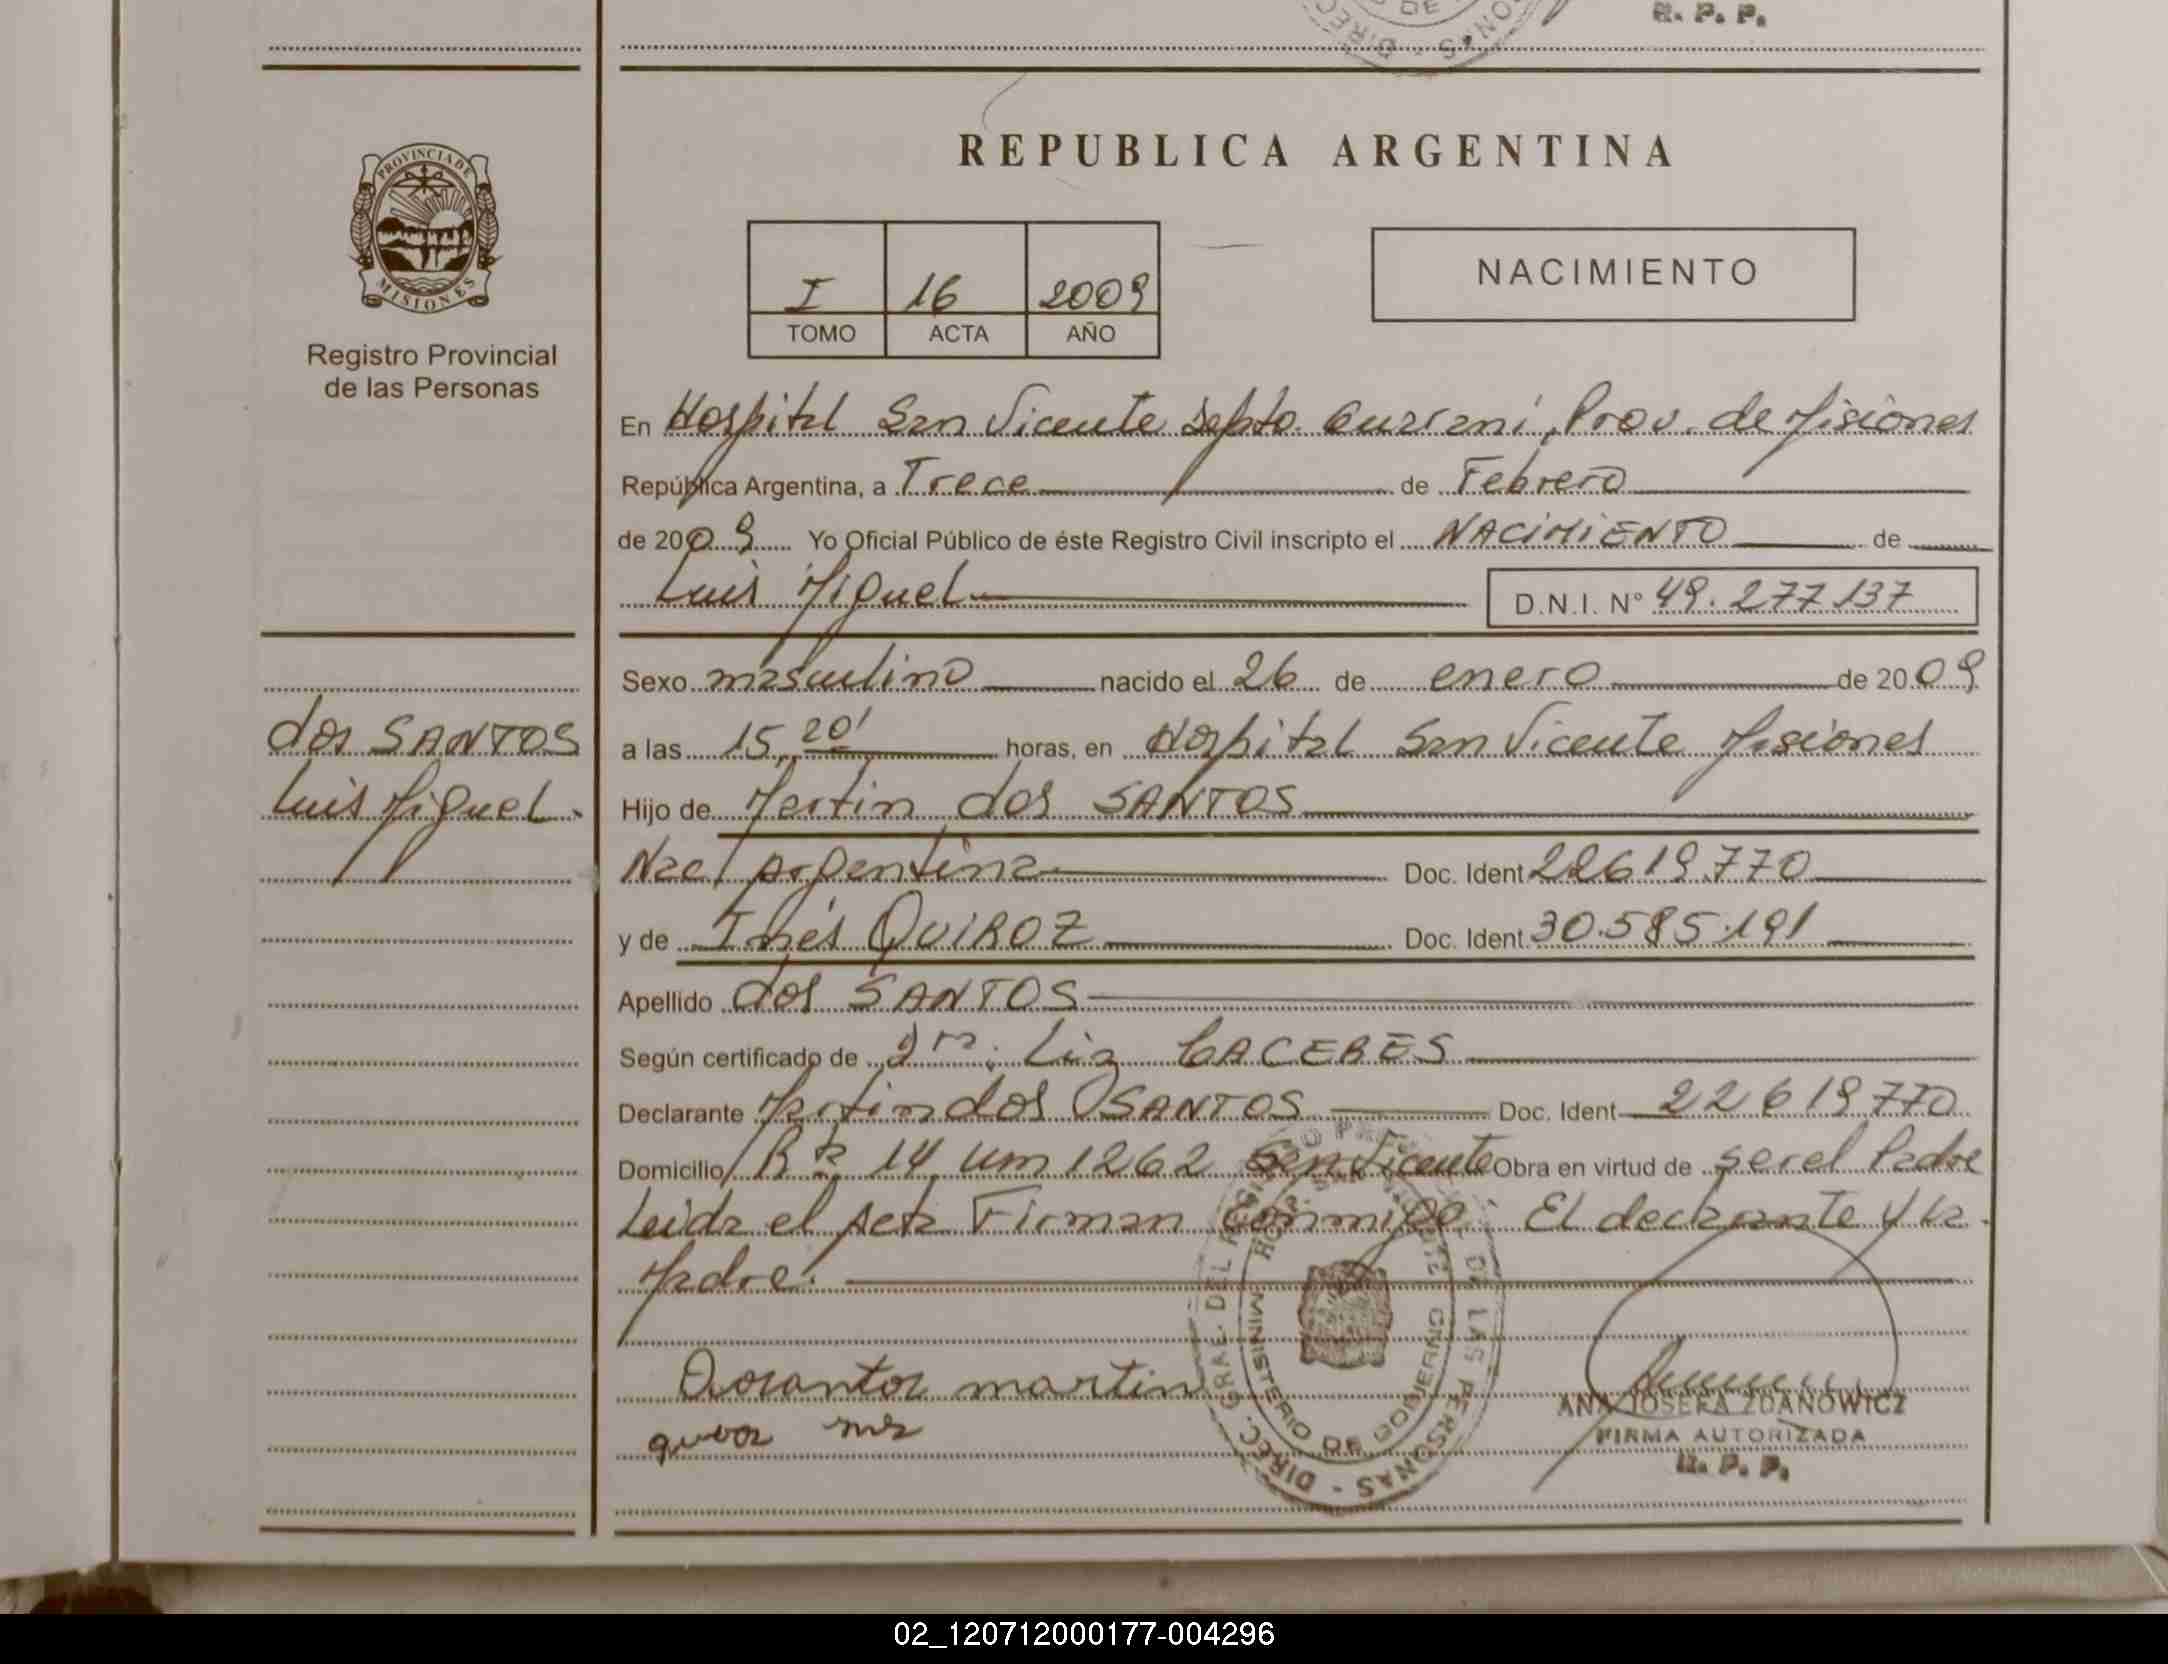 R. P. P.
PROVINCIA DE
MISIONES
Registro Provincial
de las Personas
dos SANTOS
Luis Miguel.
REPUBLICA ARGENTINA
I 16 2009
TOMO ACTA AÑO
NACIMIENTO
En Hospital San Vicente Depto. Guarani, Prov. de Misiones
República Argentina, a Trece de Febrero
de 2009 Yo Oficial Público de éste Registro Civil inscripto el NACIMIENTO de
Luis Miguel D.N.I. Nº 49.277.137
Sexo masculino nacido el 26 de enero de 2009
a las 15,20' horas, en Hospital San Vicente Misiones
Hijo de Martin dos SANTOS
Nac/ Argentina Doc. Ident 22619.770
y de Inés QUIROZ Doc. Ident. 30.585.191
Apellido dos SANTOS
Según certificado de Dra. Liz CACERES
Declarante Martin dos SANTOS Doc. Ident 22619770
Domicilio Rta 14 Km 1262 San Vicente Obra en virtud de ser el Padre
Leida el Acta Firman Conmigo: El declarante y la
Madre.
Dosantos martin
ANA JOSEFA ZDANOWICZ
FIRMA AUTORIZADA
R. P. P.
DIREC. GRAL. DEL REGISTRO PROVINCIAL DE LAS PERSONAS
HOSP. SAN VICENTE
MINISTERIO DE GOBIERNO
02_120712000177-004296